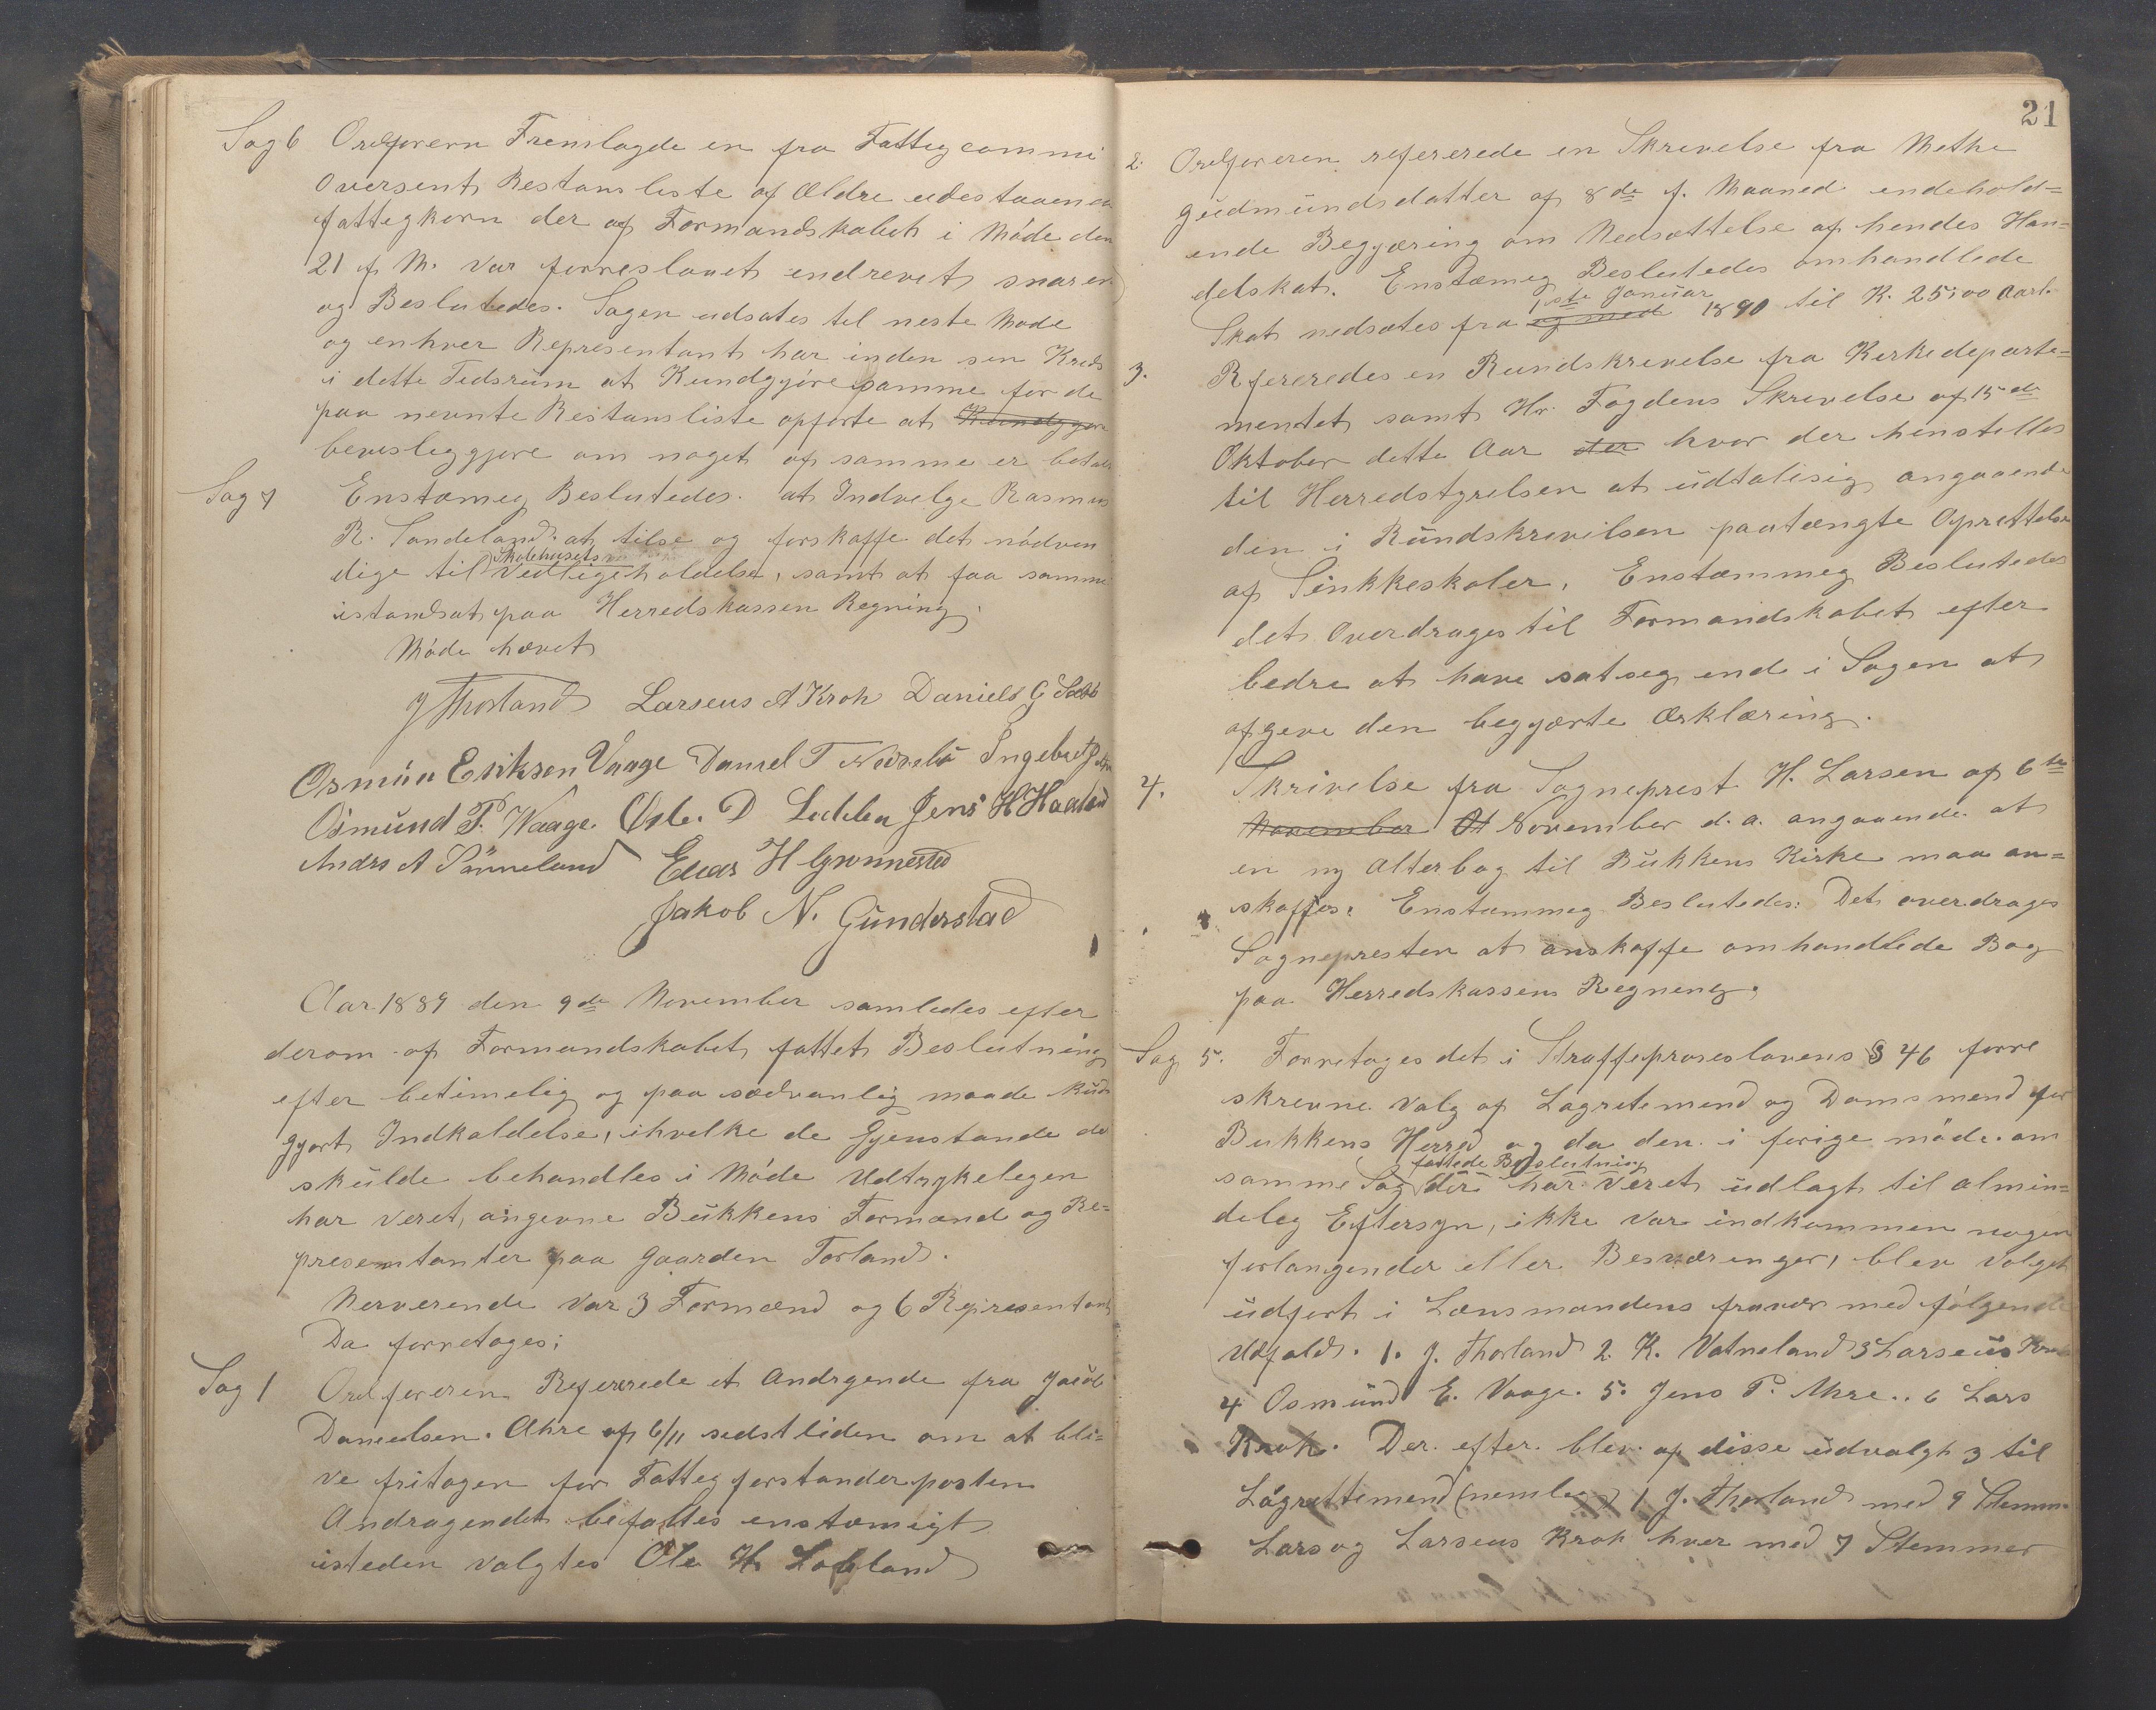 Sag 6 Ordførern Fremlagde en fra Fattigcommi
Oversent Restansliste af Ældre udestaaende
fattegkorn der af Formandskabet i Møde den
21 f. M. var forreslaaet endrevet snaren
og Beslutedes. Sagen udsates til neste Møde
og enhver Representant har inden sen Kreds
i dette Tedsrum at Kundgjöre samme for de
paa nevnte Restansliste opførte at Kundgjøre
bevesleggjøre om noget af samme er betalt
Sag 7 Enstæmeg Beslutedes. at Indvelge Rasmus
R. Sandeland at tilse og forskaffe det nödven
Skolehusets
dige til Vedligeholdelse, samt at faa samme
istandsat paa Herredskassen Regning.
Möde hævet
J Thorland Larseus A Krok Daniels G
Osmun Eriksen Vaage Daniel T Ingebret
Osmund P. Waage. Ole. D Jens H Haaland
Andrs A Sönneland H Grönnestad
Jakob N. Gunderstad
Aar 1889 den 9de November samledes efter
derom af Formandskabet fattet Beslutning
efter betimelig og paa sædvanlig maade kund
gjort Indkaldelse, ihvelke de Gjenstande de
skulde behandles i Möde Udtrykelegen
har veret, angevne Bukkens Formænd og Re=
presentanter paa Gaarden Torland.
Nerverende var 3 Formænd og 6 Representant
Da forretoges:
Sag 1 Ordføreren Refererede et Andragende fra Jacob
Danielsen. Ahre af 6/11 sedstliden om at bli=
ve fritagen for Fattegforstanderposten
Andragendet befattes enstæmigt
isteden valgtes Ole H.
21
2. Ordføreren refererede en Skrevelse fra Methe
Gudmundsdatter af 8de f. Maaned endehold=
ende Begjæring om Nedsættelse af hendes Han=
delskat. Enstæmeg Beslutedes omhandlede
1ste Januar
Skat nedsates fra og med 1890 til K. 25:00 Aarl.
3. Rfereredes en Rundskrevelse fra Kerkedeparte=
mentet samt Hr. Fogdens Skrevelse af 15de
Oktober dette Aar der hvor der henstelles
til Herredstyrelsen at udtalisig angaaende
den i Rundskrevilsen paatængte Oprettelse
af Sinkkeskoler. Enstæmmeg Beslutedes
det Overdrages til Formandskabet efter
bedre at have satseg end i Sagen at
afgeve den begjærte Ærklæring.
4. Skrivelse fra Sogneprest H. Larsen af 6te
November Ot November d. a. angaaende at
en ny Alterbog til Bukkens Kirke maa an=
skaffes: Enstæmmeg Beslutedes: Det overdrages
Sognepresten at anskaffe omhandlede Bog
paa Herredskassens Regneng.
Sag 5. Forretoges det i Straffeproseslovens § 46 forre
skrevne valg af Lagretemend og Domsmend for
Bukkens Herred og da den i forige møde om
fattede Beslutning
samme Sag der har veret udlagt til almin=
deleg Eftersyn, ikke var indkommen nogen
forlangender eller Besværenger, blev valget
udført i Lænsmandens fravær med følgende
Udfald. 1. J. Thorland 2. K. Vatneland 3 Larseus Krok
4 Osmund E. Vaage. 5. Jens P. Ahre.. 6 Lars
Krok. Der. efter. blev. af disse udvalgt 3 til
Lagrettemend (nemleg) 1 J. Thorland med 9 Stemm
Lars og Larseus Krok hver med 7 Stemmer